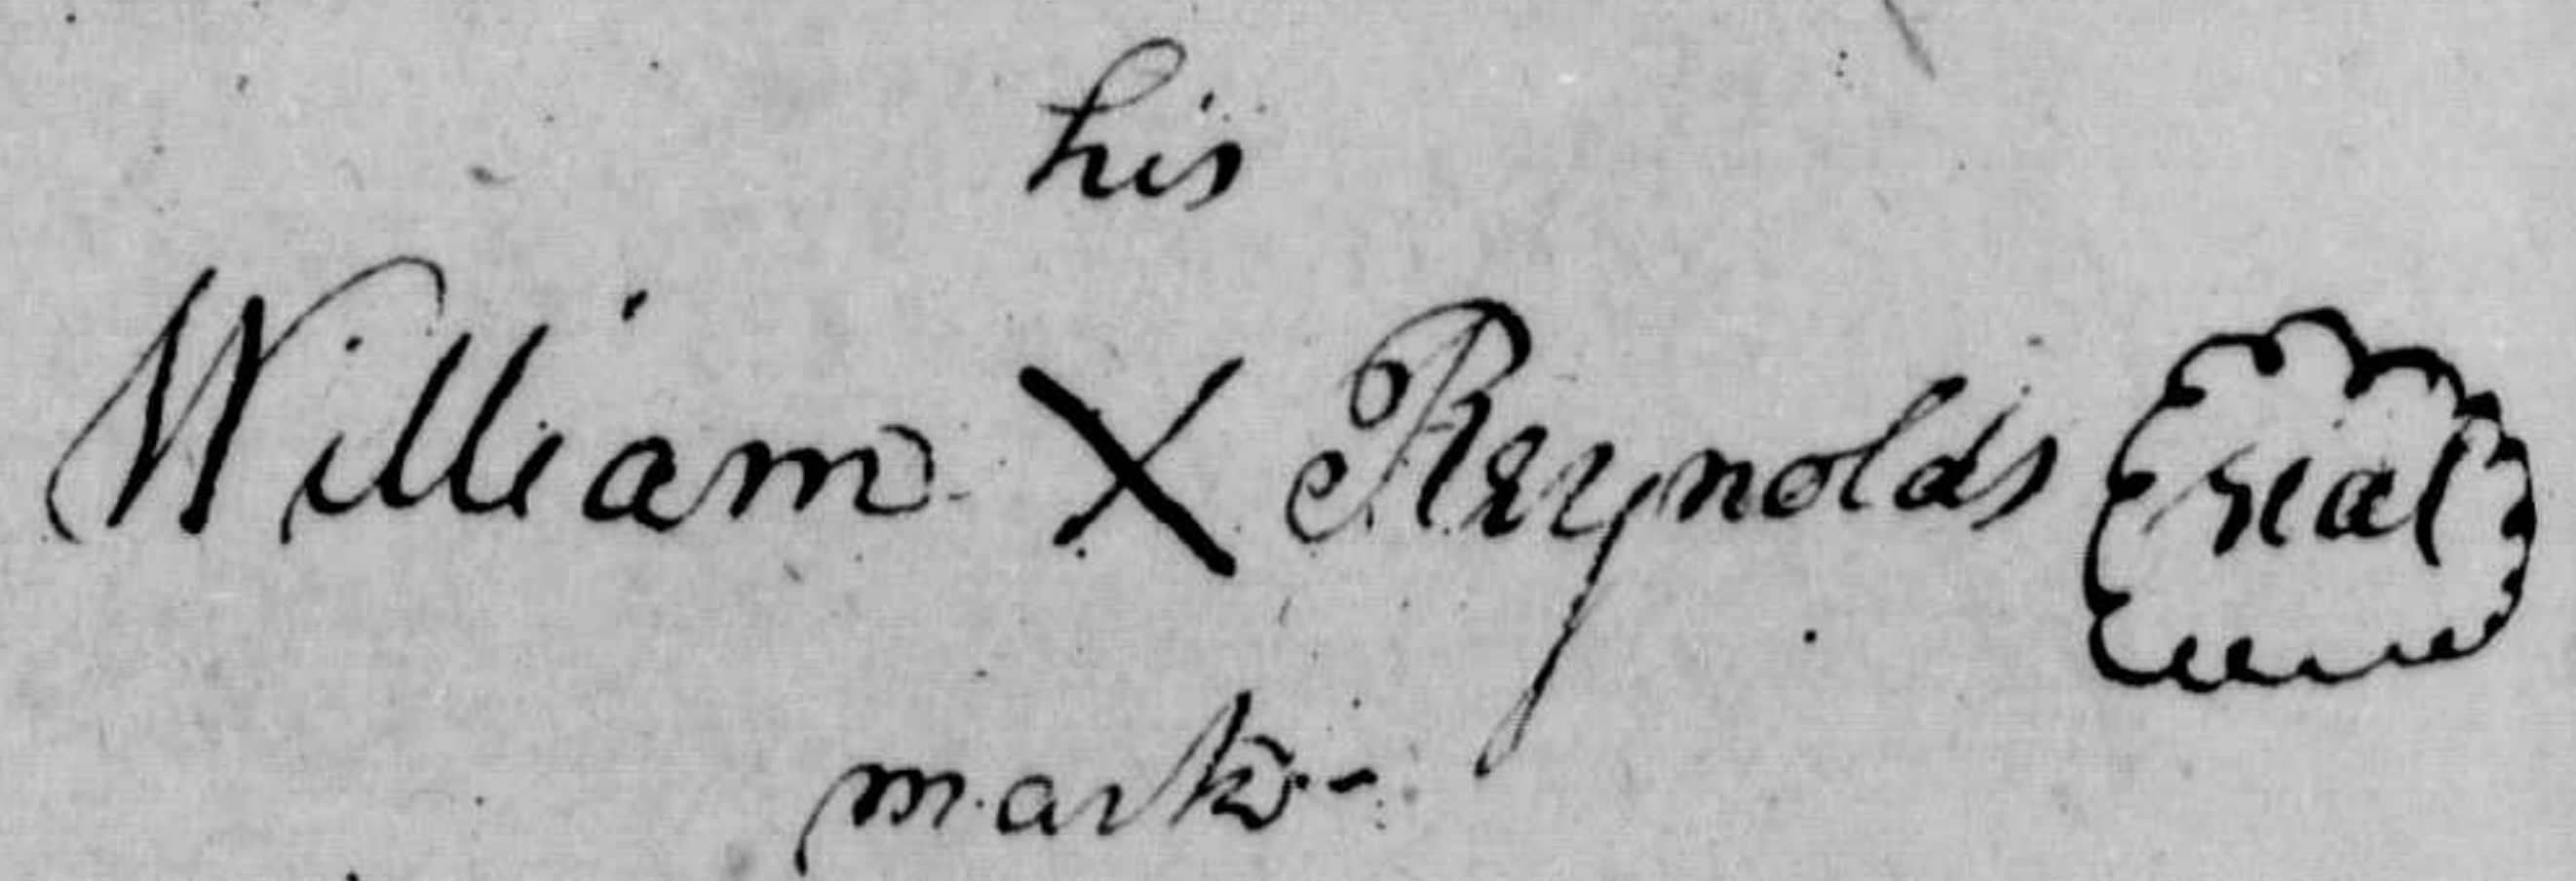 his
William X Reynolds seal
mark-